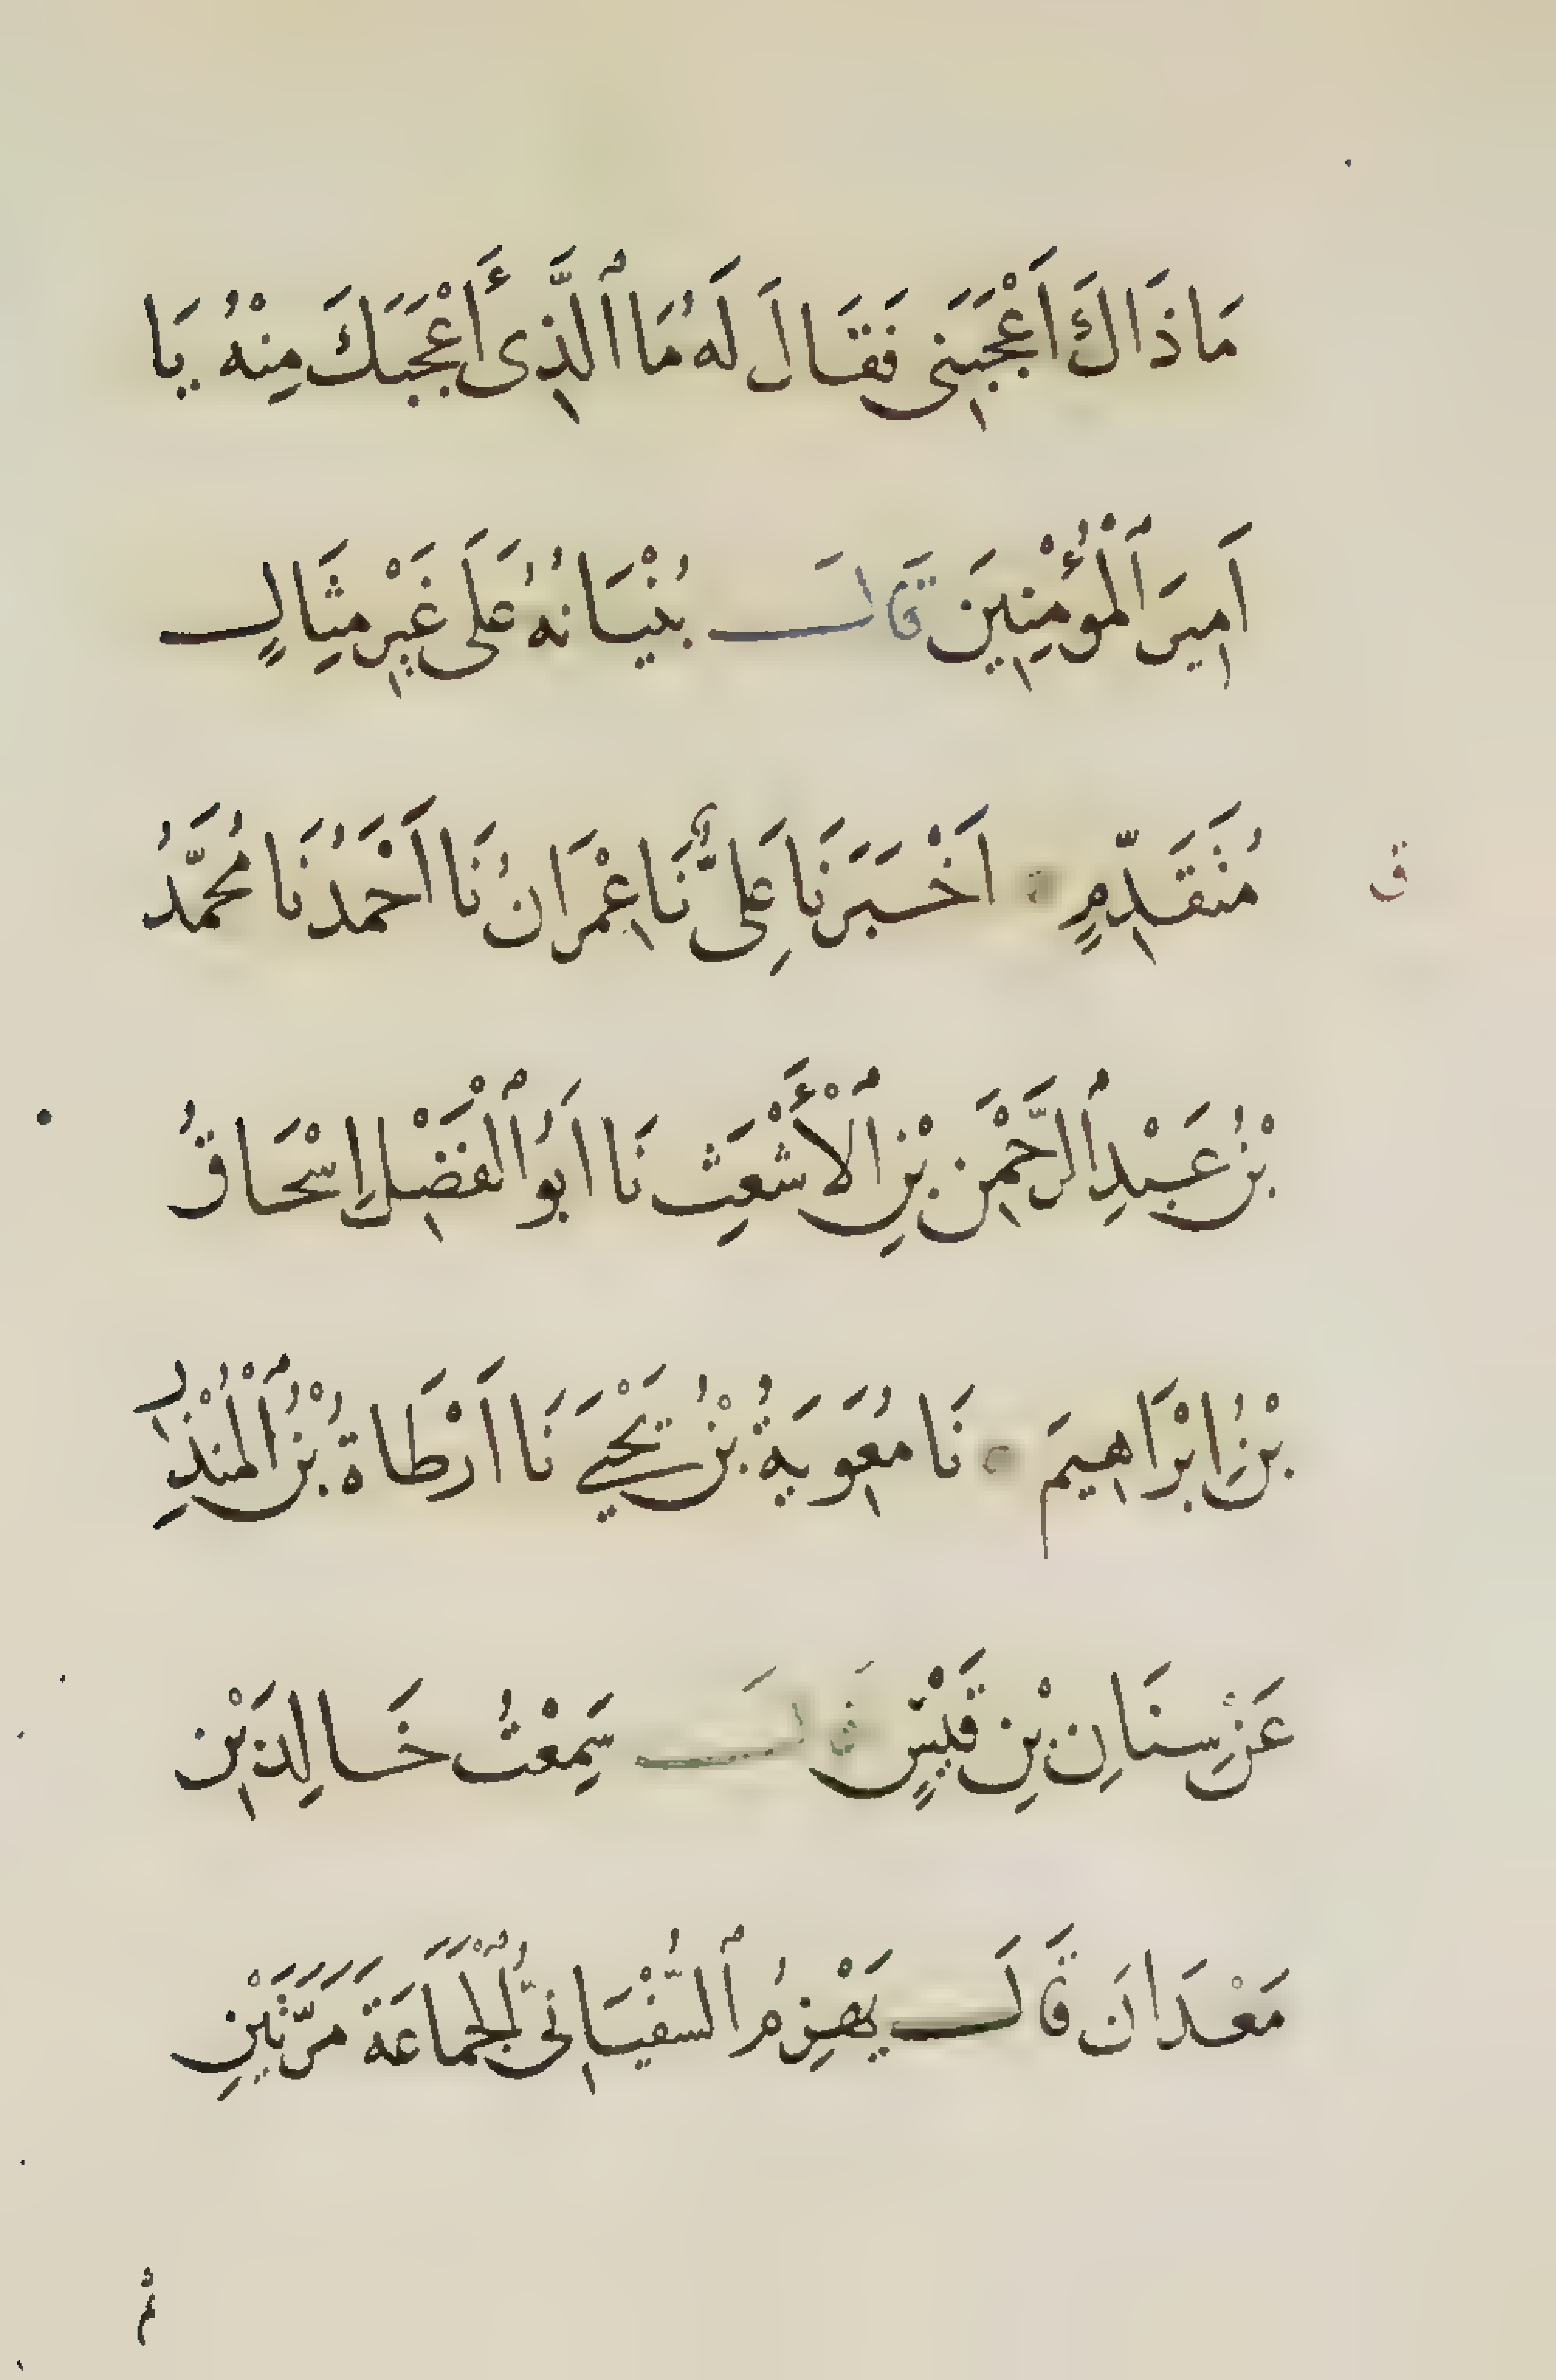 مَا ذَاكَ اَعْجَبَنِى فَقَالَ لَهُ مَا ٱلَّذِى أَعْجَبَكَ مِنْهُ يَا
اَمِيرَ ٱلْمُؤْمِنِينَ قَالَ بُنْيَانُهُ عَلَى غَيْرِ مِثَالٍ
مُتَقَدِّمٍ اَخْبَرَنَا عَلِىٌّ نَا عِمْرَانُ نَا اَحْمَدُ نَا مُحَمَّدُ
ق
بْنُ عَبْدِ ٱلرَّحْمٰنِ بْنِ ٱلْأَشْعَثِ نَا اَبُو ٱلْفَضْلِ إِسْحَاقُ
بْنُ إِبْرَاهِيمَ نَا مُعَوِيَةُ بْنُ يَحْيَى نَا اَرْطَاةُ بْنُ ٱلْمُنْذِرِ
عَنْ سِنَانِ بْنِ قَيْسٍ قَالَ سَمِعْتُ خَالِدَ بْنَ
مَعْدَانَ قَالَ يَهْزِمُ ٱلسُّفْيَانِىُّ ٱلْجَمَاعَةَ مَرَّتَيْنِ
ثُمَّ